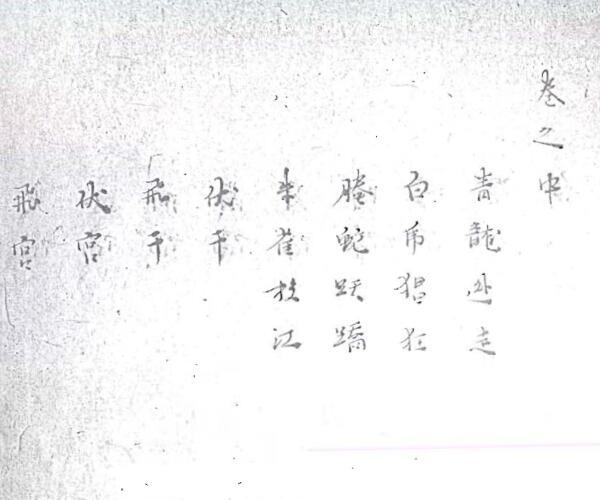 卷之中
青龍迯走
白乕猖狂
螣蛇跃蹻
朱雀投江
伏干
飛干
伏宮
飛宮